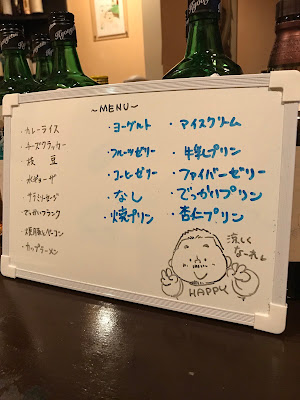 ~MENU~
・カレーライス
・チーズクラッカー
・枝豆
・水ギョーザ
・サラミソーセージ
・でっかいフランク
・カップラーメン
・ヨーグルト
・フルーツゼリー
・コーヒーゼリー
・なし
・焼プリン
・アイスクリーム
・牛乳プリン
・ファイバーゼリー
・でっかいプリン
・杏仁プリン
涼しく
なーれ
HAPPY